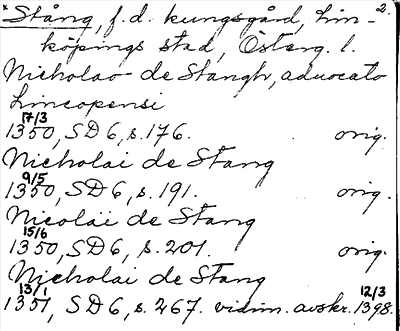 × Stång, f.d. kungsgård, Lin- 2.
köpings stad, Österg. l.
Nicholao de Stangh, aduocato
Lincopensi
17/3
1350, SD 6, s. 176. orig.
Nicholai de Stang
9/5
1350, SD 6, s. 191. orig.
Nicolai de Stang
15/6
1350, SD 6, s. 201. orig.
Nicholai de Stang
13/1 12/3
1351, SD 6, s. 267. vidim. avskr. 1398.